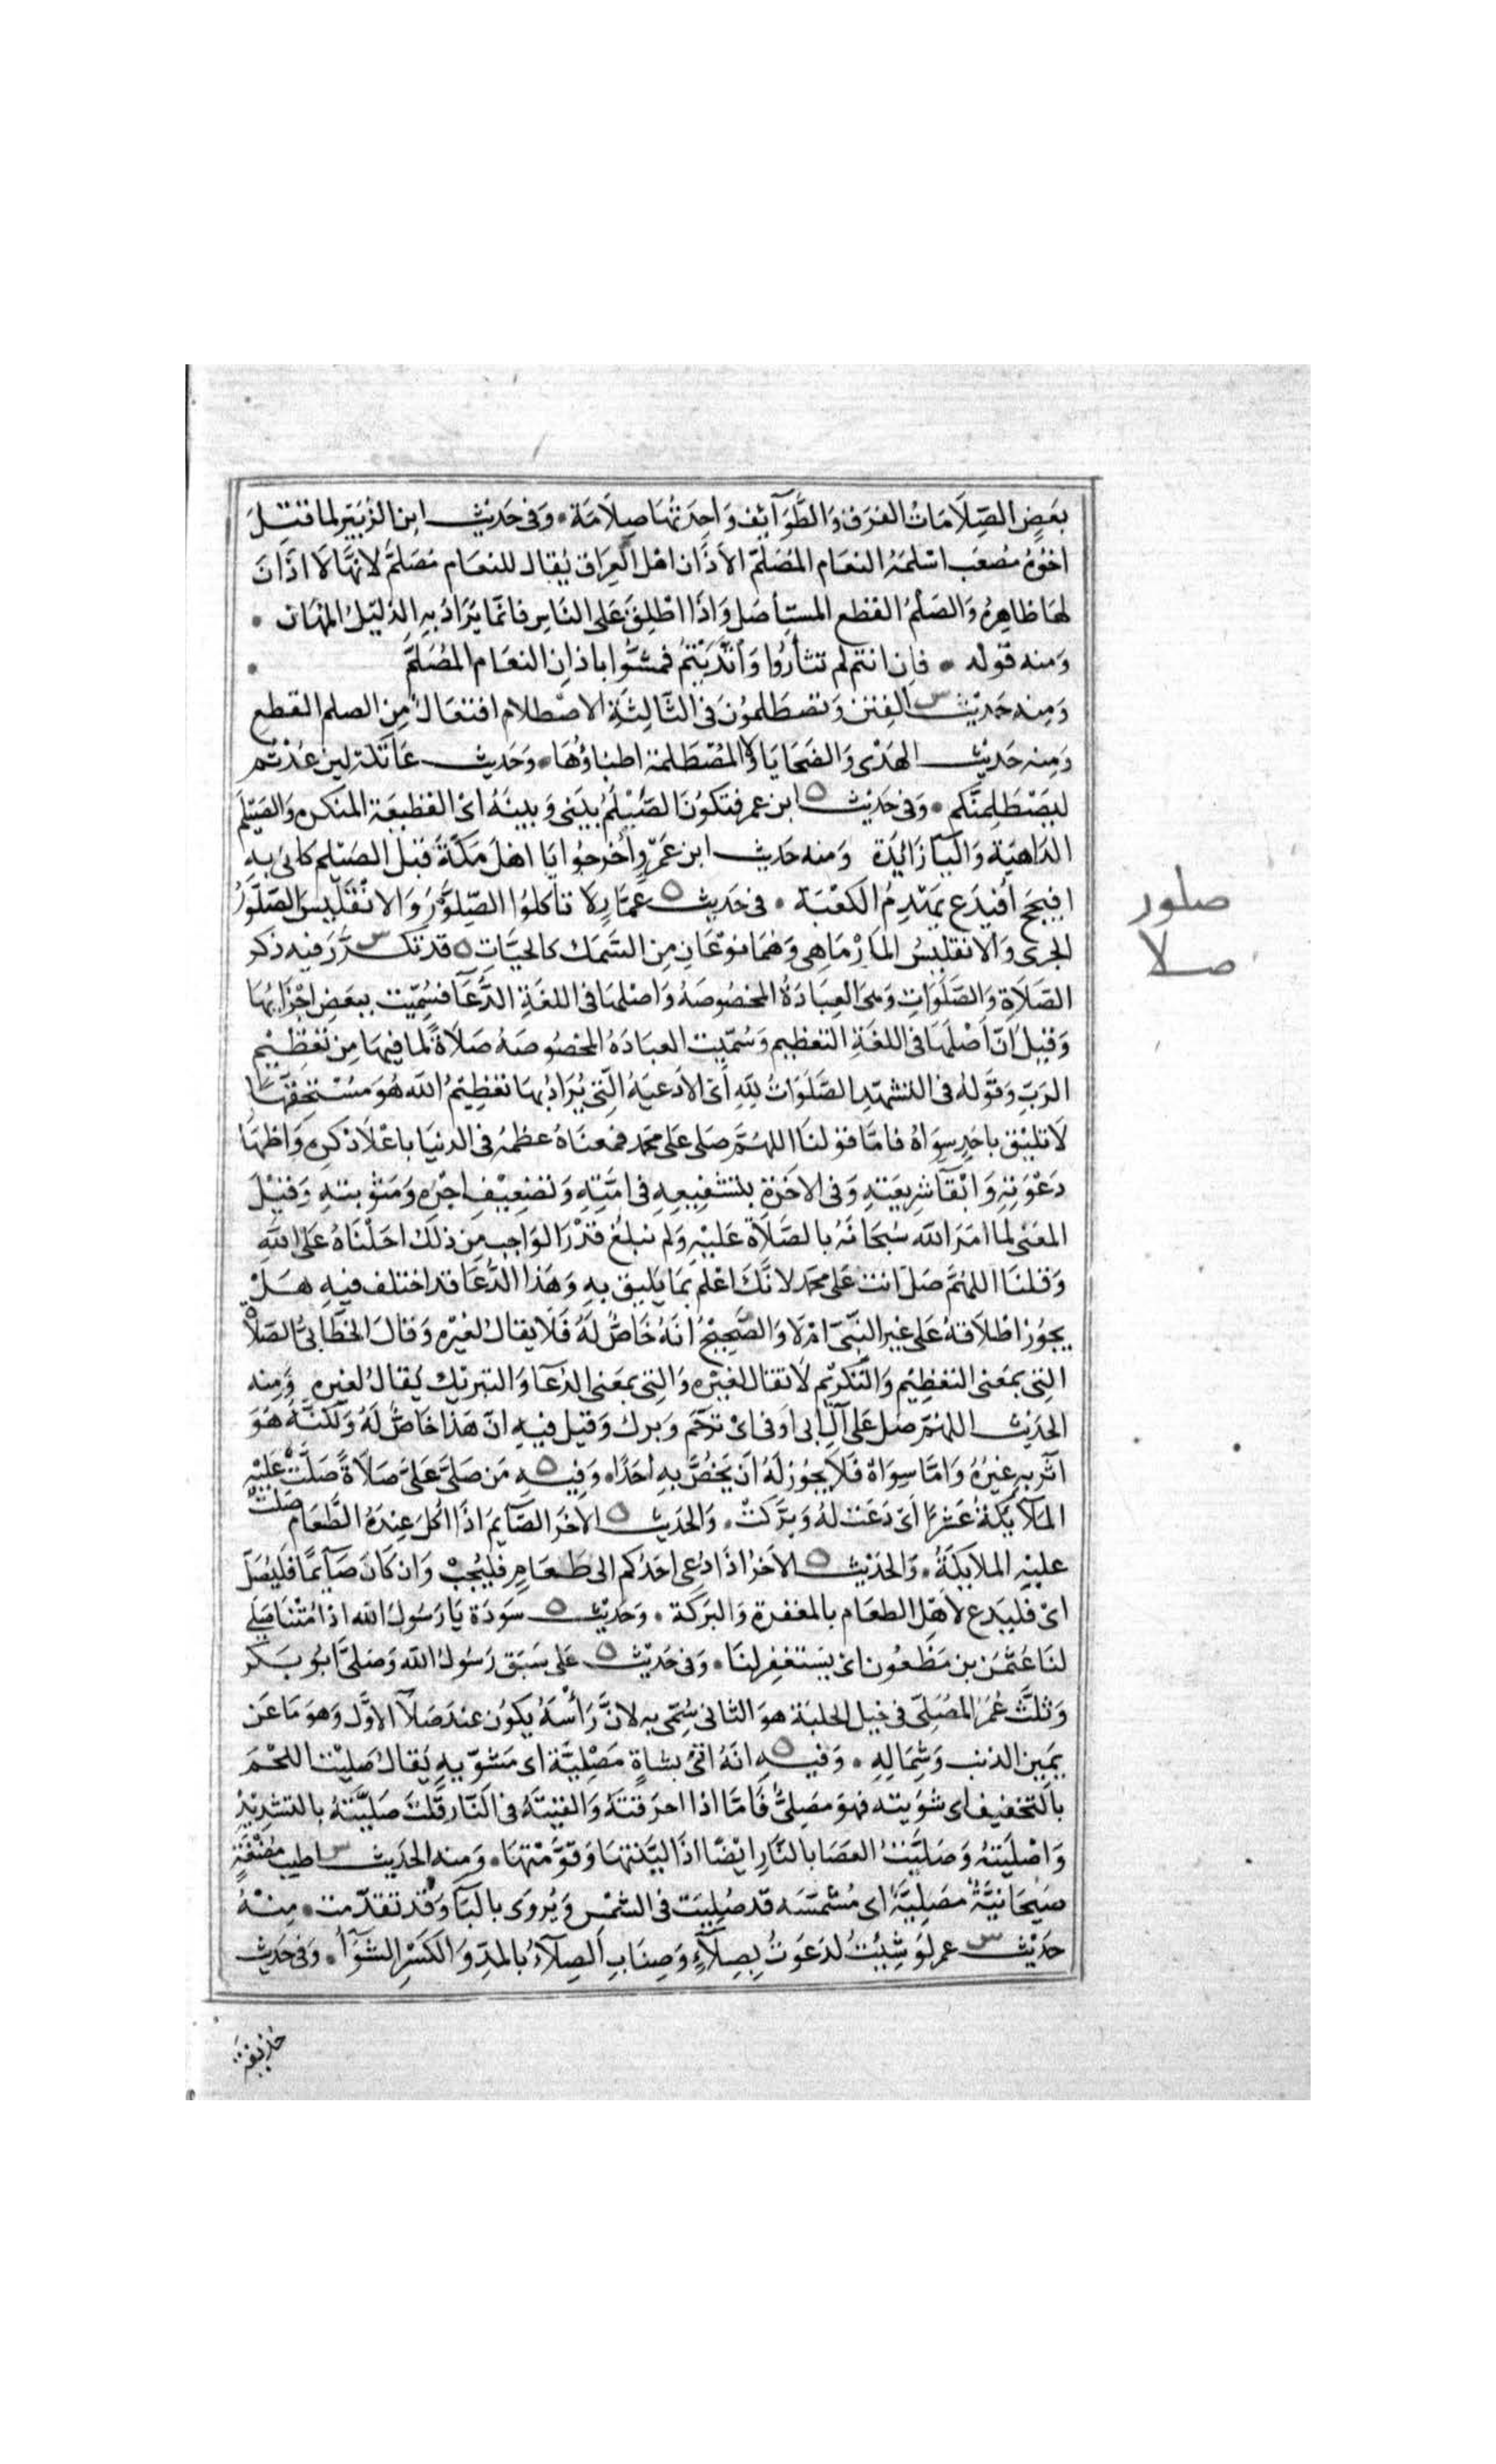 بَعَضٍ الصِّلَامَاتُ الفرَق وَالطَّوَآئِف وَاحِدَتُهَا صِلَامَة ۰ وَفى حَدَيث ابن الزُبَيَر لما قتِلَ
اخوُهُ مُصعَب اسْلمَهُ النعَام المُصَلَّم الاَذَان اهْل العِرَاق يُقال للنعَام مُصَلَّم لانهَا لَا اذَانَ
لهَا ظَاهِرهُ وَالصَلمُ القطع المستِأصَل وَاذَا اطْلِقَ عَلى النَاسِ فَانمَا يُرَادُ بهِ الذلِيَلُ المهَان ۰
وَمنه قوَله ۰ فاِن انتم لم تثأرُوا وَاتَّدَيْتُم فمشُّوا باذاِن النعَام المُصَلَّم ۰
وَمِنه حَدَيْث س الفِتَن وَتصطَلموُنَ فى الثَّالِثَةِ الاصْطلام افتعَالٌ مِن الصلم القطع
وَمِنه حَدِيْث الهَدْى وَالضحَايَا وَلا المُصْطَلمة اطباؤُهَا ۰ وَحَديث عَاتكة لين عُدْتم
ليَصْطَلِمنَّكم ۰ وَفى حَديْث ه ابن عمر فتكوُنَ الصَّيْلَمُ بَيَنى وَبينَهُ اىْ القطيعَة المنكره وَالصَيْلَم
الدَاهَيَة وَاليَآ زَائِدَة وَمنه حَديث ابن عَمَرو أُخرجوُا يَا اهْلَ مَكةَ قبْل الصَيْلم كانىِ بهِ
افيحِج اُفيَدِع يَهْدِمُ الكَعْبَة ۰ فى حَديث ه عَمَّارٍ لَا تأكلوُا الصِّلوَّرَ وَالانْقَلَيسَ الصِّلَّورُ
الجرى وَالانقليسُ المَارْمَاهِى وَهُمَا نوْعَانِ مِن السَّمَك كالحيَّات ه قد تكرَّرَ س فيه ذكر
الصَلَاةِ وَالصَّلَوَاتِ وَهىَ العِبَادَةُ المخصُوصَهُ وَاصْلهَا فى اللغَةِ الدُّعَآ فسُمِّيَت ببعَضِ اجْزَآئِهَا
وَقيِلَ انّ اَصْلَهَا فى اللغَةِ التعَظِيم وَسُمّيت العبَادَهُ المخصُوصَهُ صَلَاةً لما فيهَا مِن تعْظِيْمِ
الرَبِّ وَقوَلهُ فى التشهّدِ الصَّلَوَاتُ لِلّهِ أىْ الاَدعيَهُ الّتِى يُرَادُ بهَا تعَظِيمُ الله هُوَ مُسْتَحِقّهَا
لَا تليْق باحَدٍ سِوَاهُ فامَّا قوْلنَا اللهُمَّ صَلى عَلى محمَد فمعنَاهُ عظمْهُ فى الدنيَا باعْلَا ذكرِهِ وَاظهَا
دَعْوَتِهِ وَابْقآ شرِيعَتهِ وَفى الاخَرَةِ بتشفيِعهِ فى امَّتِهِ وَتضعِيْف اجْرِهِ وَمَثوبتهِ وَقيْلَ
المعَنى لما امَرَ الله سُبحَانهُ بالصَّلَاة عَليْهِ وَلم نبلغْ قدْرَ الوَاجب مِن ذلكَ احَلْنَاهُ عَلى اللهِ
وَقلنَا اللهُمَّ صَل انت عَلى محمَد لانَّكَ اعْلم بمَا يَليِق بهِ وَهَذا الدُّعَا قد اختلف فيهِ هَلْ
يجوُز اطْلَاقهُ عَلى غيرِ النبّىِ امْ لَا وَالصَّحِيْحُ انهُ خَاصُّ لَهُ فَلَا يقالُ لغيْرهِ وَقالَ الخطَّابىُّ الصَلَاةُ
التِى بمَعنى التعَظِيْم وَالتكريْم لَا تقال لغيْرهِ وَالتِى بمَعنى الدُعَآ وَالتبريْك يُقالُ لغيرهِ وَمِنه
الحَدَيث اللهُمَّ صَلِ عَلى آلِ ابى اوَفى اىْ ترَحّم وَبرك وَقيل فيهِ انّ هَذا خَاصٌّ لهُ وَلكنَّهُ هُوَ
آثرَ بهِ غيْرَهُ وَامَّا سِوَاهُ فَلَا يجوُز لهُ اَن يَخُصَّ بهِ احَدًا ۰ وَفيـه ه مَن صَلَّى عَلىَّ صَلَاةً صَلَّتْ عَليْهِ
الملَآئِكَةُ عَشْرًا اَىْ دَعَت لهُ وَبَرَّكتْ ۰ وَالحديث ه الاَخَر الصَّآيمَ اذَا اُكلَ عِندَهُ الطَّعَام صَلت
عليْهِ الملَايكةُ ۰ وَالحَدَيْث ه الاخَرُ اذَا دُعِى احَدُكم الى طَعَامٍ فليُجبْ وَان كَانَ صَآيمًا فَليُصَلّ
اىْ فليَدع لاهْلِ الطعَام بالمغفرةِ وَالبرَكة ۰ وَحَديْث ه سوَدَة يَا رَسُوكَ الله اذا مُتْنَا صَلى
لنَا عُثمٰن بن مَظعُون اىْ يسَتغفر لنَا ۰ وَفى حَديْث ه عَلى سَبَق رَسُولُ الله وَصَلىَّ ابُو بَـكر
وَثلَّث عُمَر المُصَلِّى فى خيل الحلبَة هوَ الثانى سُمِّى بهِ لانَّ رَأسَهُ يكوُن عندَ صَلَآ الاوَّل وَهوَ مَا عَن
يمَيِن الذنب وَشِمَالهِ ۰ وَفيـه ه انهُ اتىُ بشاةٍ مَصْلِيَّة اى مَشوّيهِ يَقالُ صَليْت اللحْمَ
باَلتخفيف اى شوَيته فهوَ مَصلِىُّ فَامَّا اذا احرَقتهُ وَالقيتهُ فى النَّار قلتَ صَليَّتهُ بالتشدِيْدِ
وَاصْلَيَتهُ وَصَليَّتُ العصَا بالنَّارِ ايْضًا اذَا ليَّنتهَا وَقوَّمْتهَا ۰ وَمنه الحَدَيث س اطيب مُضْغَةٍ
صَيحَانيَّةٌ مَصَلِيَّةٌ اى مُشمّسَه قد صُلِيَت فى الشمْسِ وَيُروَى بالبَآ وَقد تقدّمت ۰ مِنْهُ
حَدَيْث س عمر لوَ شِئتُ لدَعَوتُ بِصِلَآءٍ وَصِنَابِ الصِلَآءُ بالمدِّ وَالكَسْرِ الشوَآءُ ۰ وَفى حَدَيث
حذيفة
صلور
صلا